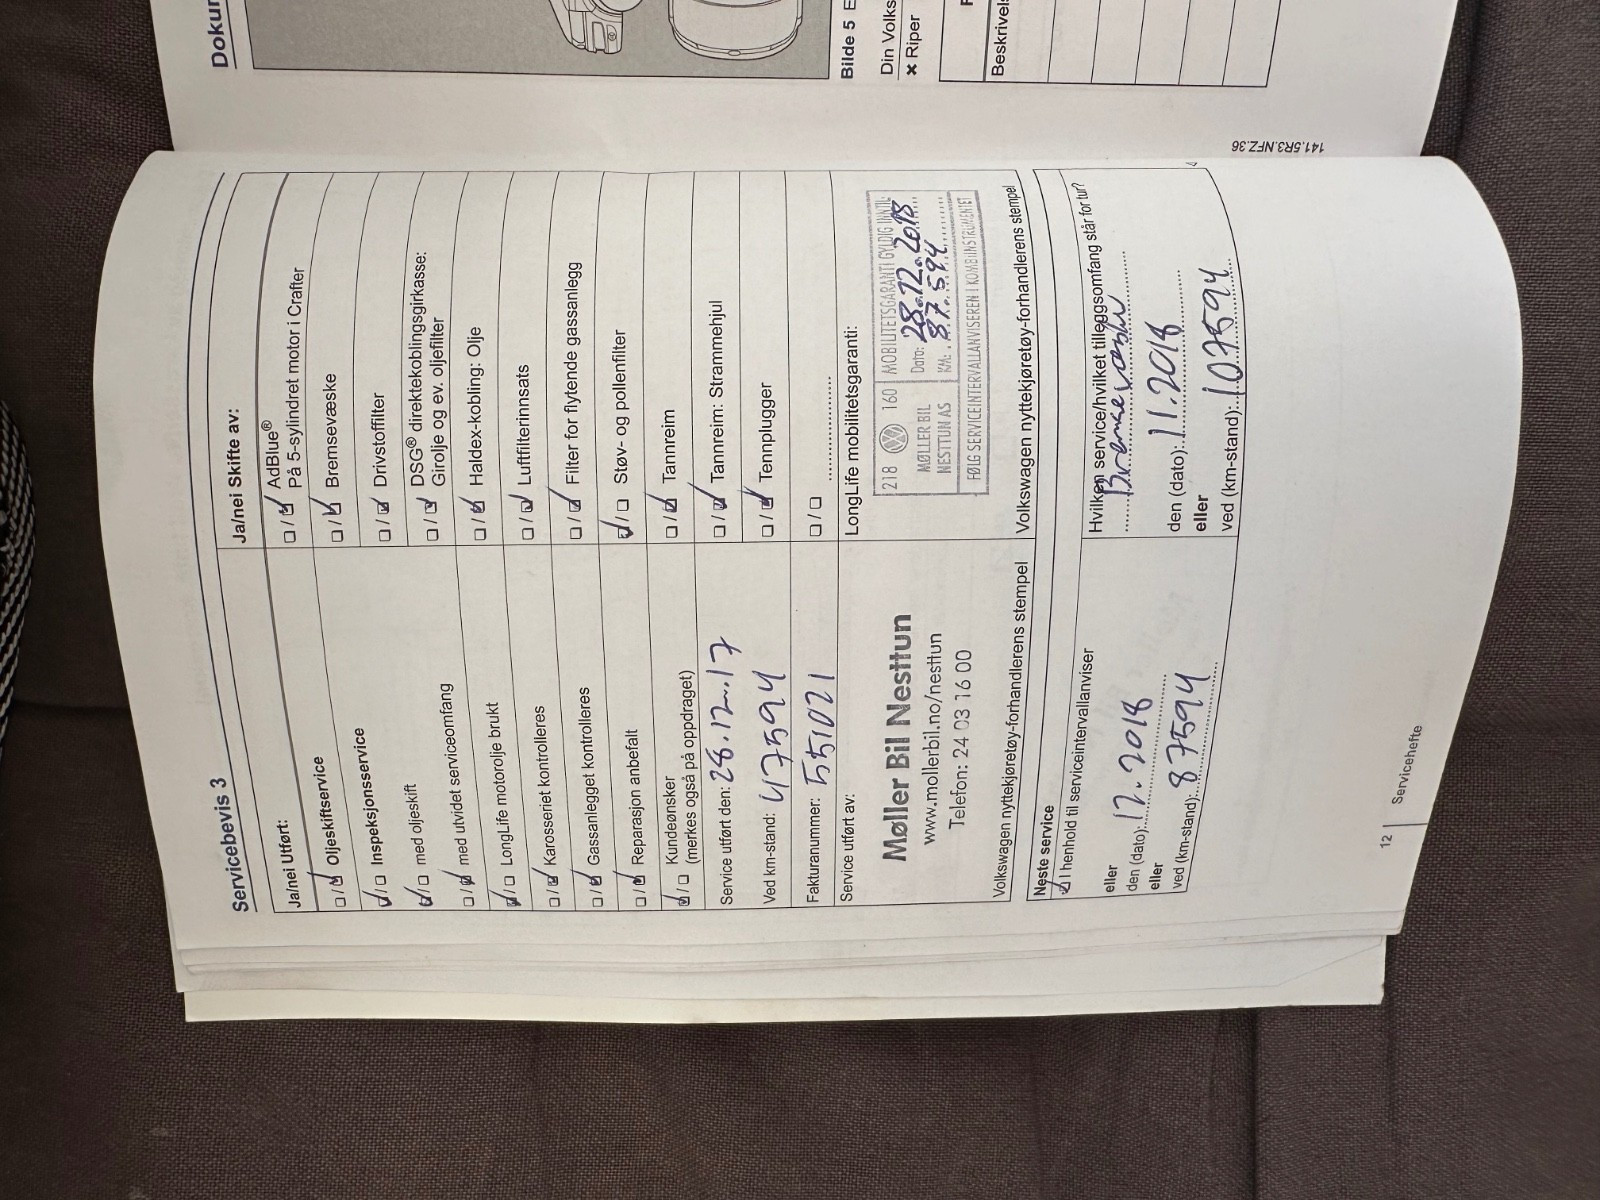 Servicebevis 3
Ja/nei Utført:
Oljeskiftservice
Inspeksjonsservice
med oljeskift
med utvidet serviceomfang
LongLife motorolje brukt
Karosseriet kontrolleres
Gassanlegget kontrolleres
Reparasjon anbefalt
Kundeønsker
(merkes også på oppdraget)
Service utført den: 28.12.17
Ved km-stand: 47594
Fakturanummer: 551021
Service utført av:
Møller Bil Nesttun
www.mollerbil.no/nesttun
Telefon: 24 03 16 00
Volkswagen nyttekjøretøy-forhandlerens stempel
Ja/nei Skifte av:
AdBlue®
På 5-sylindret motor i Crafter
Bremsevæske
Drivstoffilter
DSG® direktekoblingsgirkasse:
Girolje og ev. oljefilter
Haldex-kobling: Olje
Luftfilterinnsats
Filter for flytende gassanlegg
Støv- og pollenfilter
Tannreim
Tannreim: Strammehjul
Tennplugger
LongLife mobilitetsgaranti:
218 160
MØLLER BIL
NESTTUN AS
MOBILITETSGARANTI GYLDIG INNTIL:
Dato: 28.12.2018
KM: 87.594
FØLG SERVICEINTERVALLANVISEREN I KOMBIINSTRUMENTET
Volkswagen nyttekjøretøy-forhandlerens stempel
Neste service
I henhold til serviceintervallanviser
eller
den (dato): 12.2018
eller
ved (km-stand): 87594
Hvilken service/hvilket tilleggsomfang står for tur?
Bremsevæske
den (dato): 11.2018
eller
ved (km-stand): 107594
12
Servicehefte
141.5R3.NFZ.36
Dokum
Bilde 5 E
Din Volks
× Riper
Beskrivels